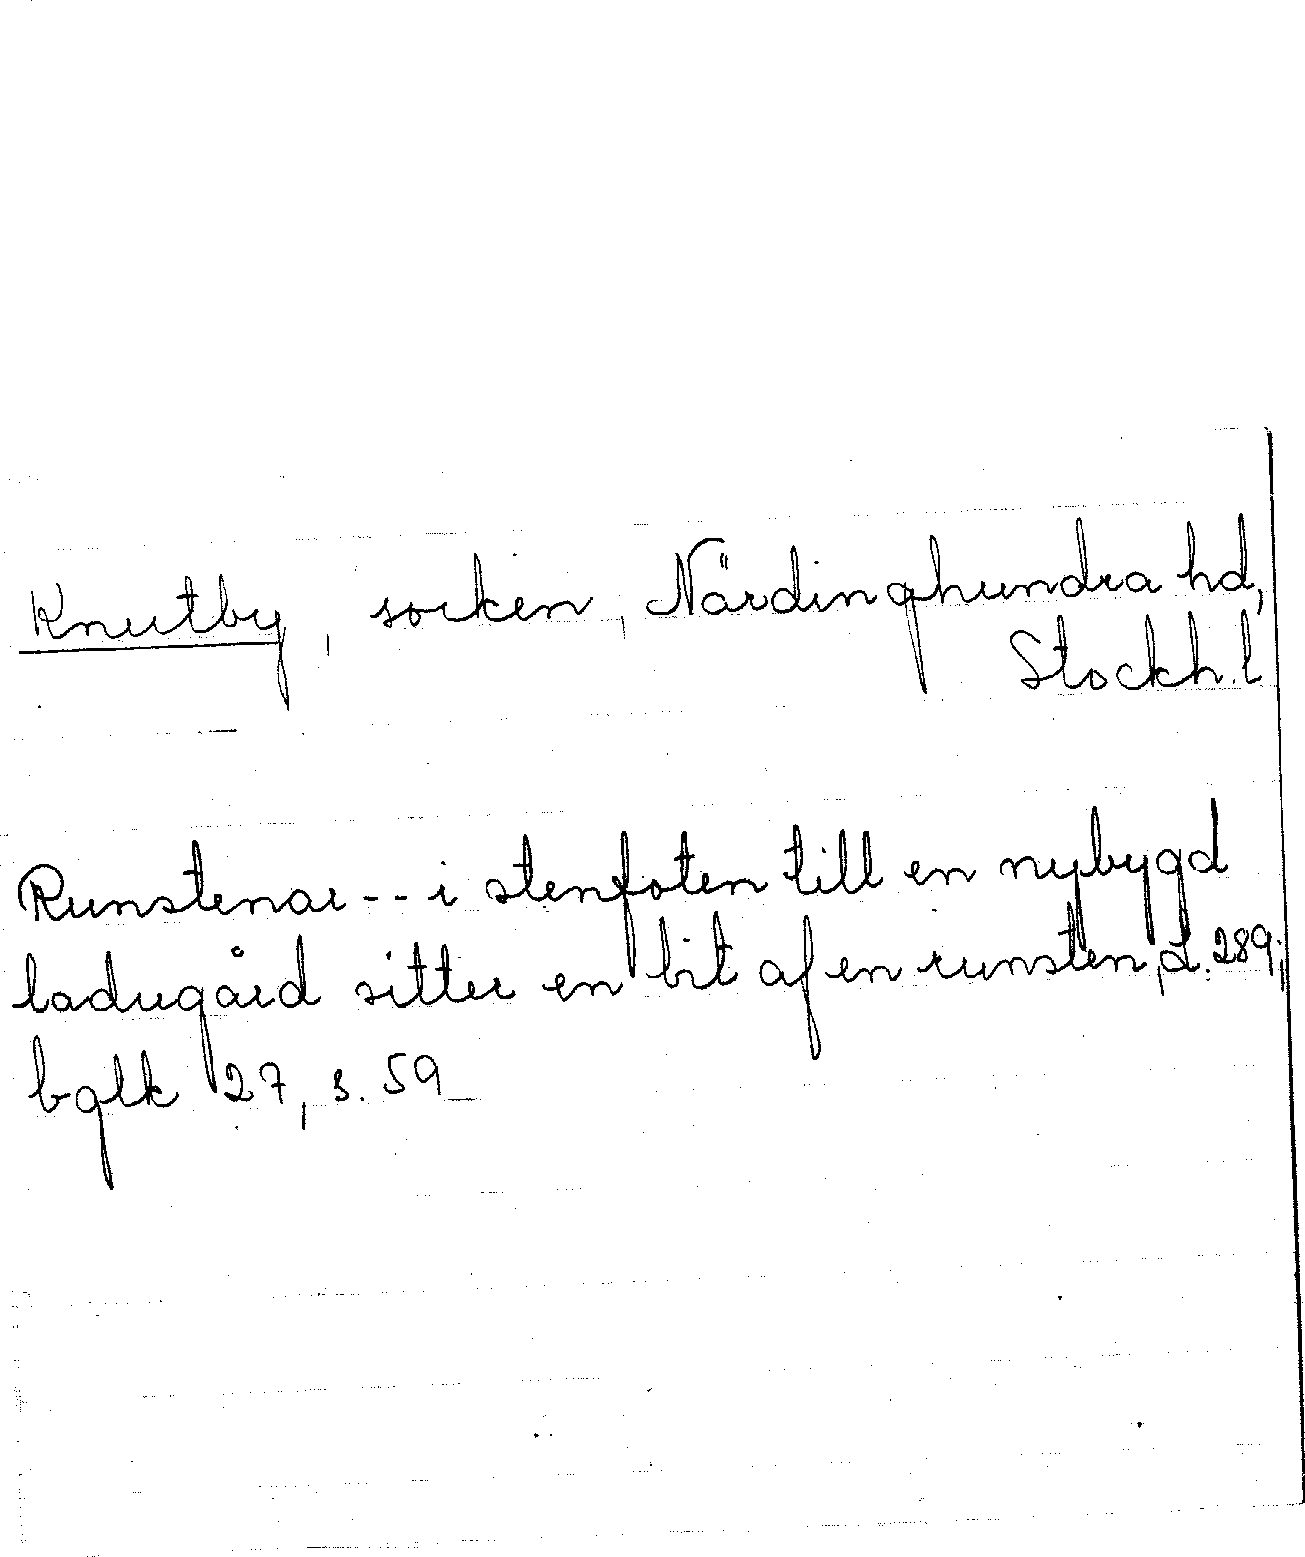 Knutby, socken, Närdinghundra hd,
Stockh. l
Runstenar -- i stenfoten till en nybygd
ladugård sitter en bit af en runsten, L. 289;
bglk 27, s. 59